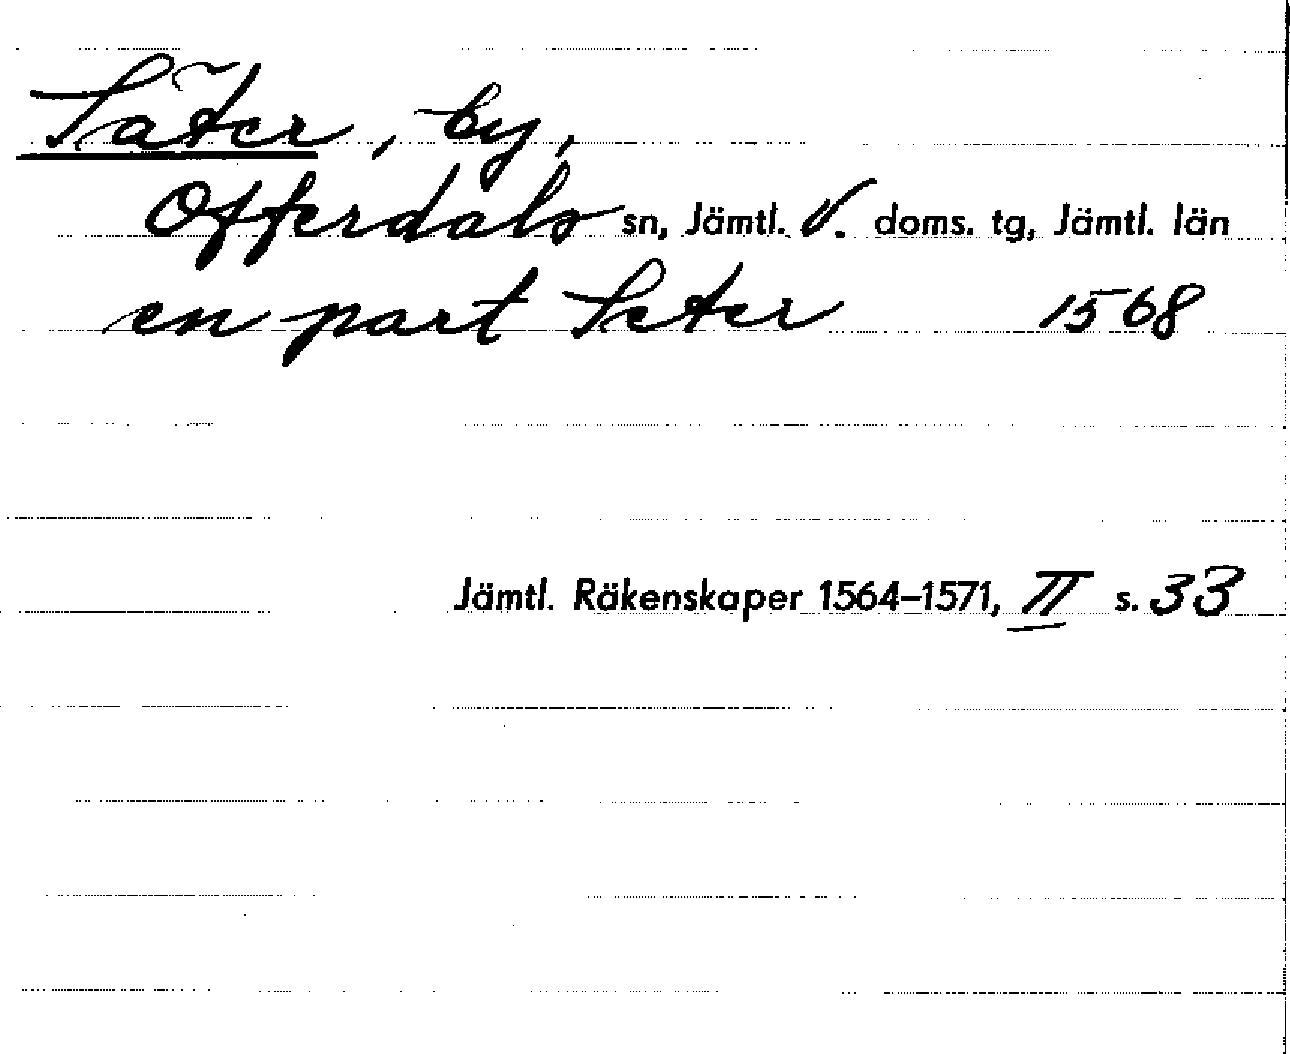 Säter, by,
Offerdals sn, Jämtl. V. doms. tg, Jämtl. län
en part Seter 1568
Jämtl. Räkenskaper 1564–1571, II s. 33